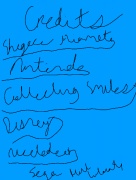 Credits
Shigeru Miamoto
Nintendo
Collecting Smiles
Disney
Sega